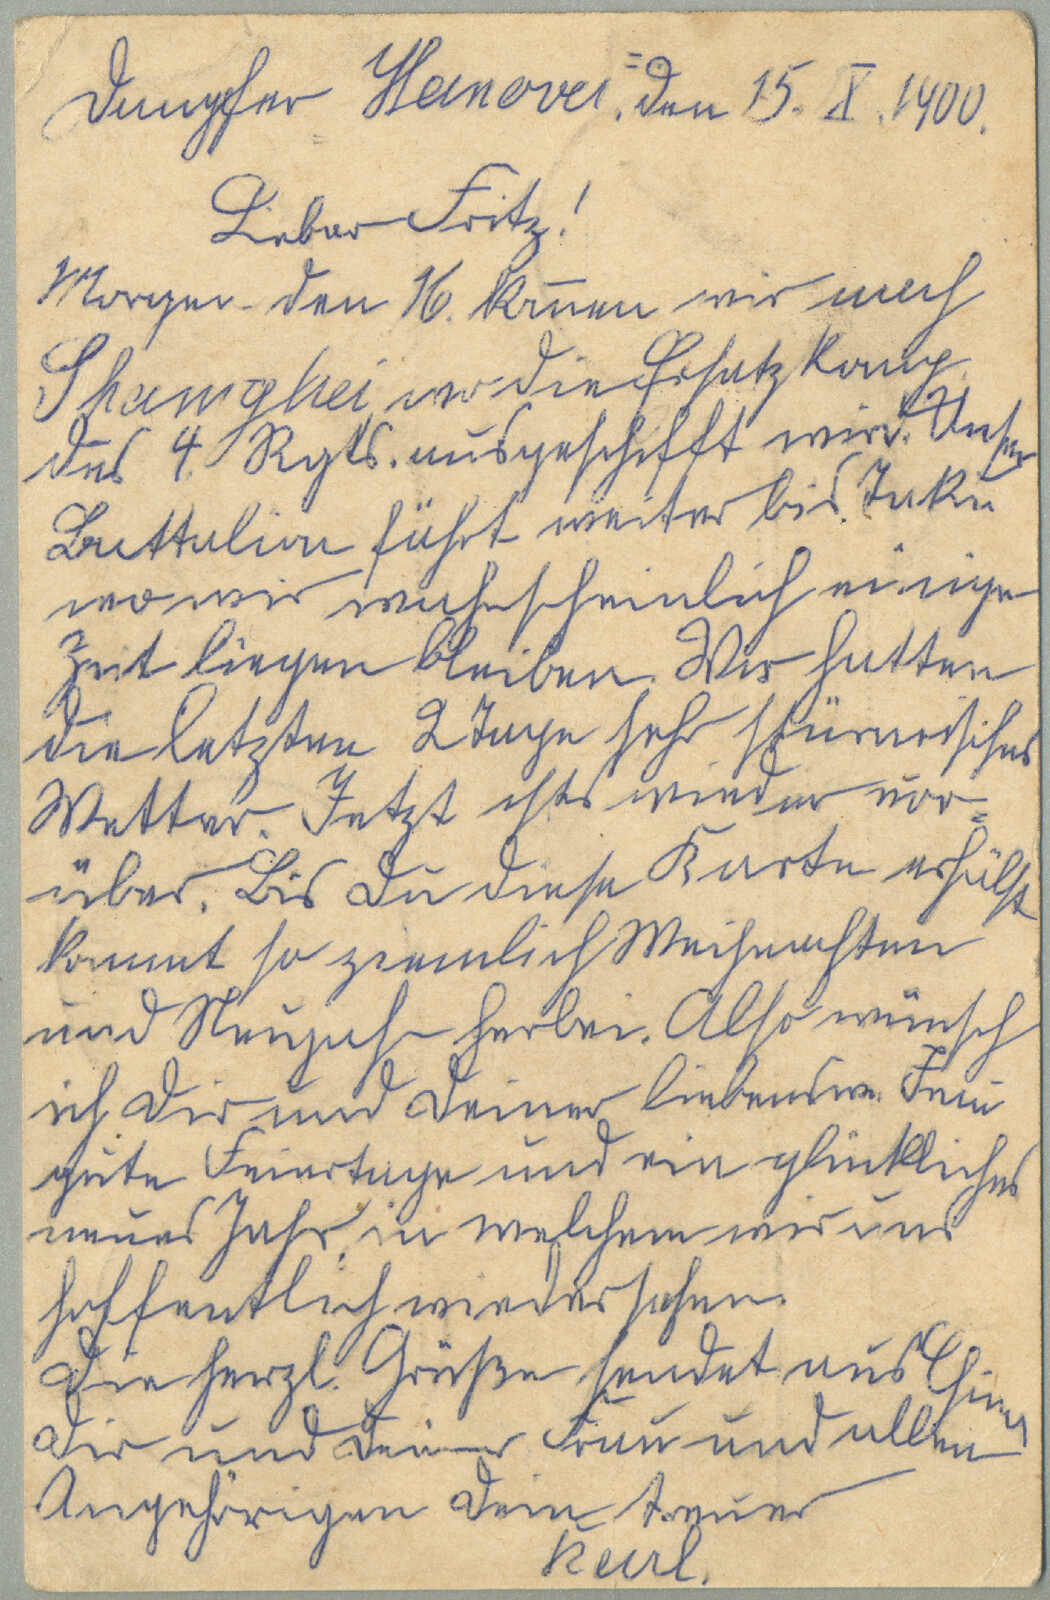 Dampfer Hanover, den 15. X. 1900.
Lieber Fritz!
Morgen den 16. kommen wir nach
Shanghei, wo die Ersatzkomp.
des 4. Rgts. ausgeschifft wird. Unser
Battalion fährt weiter bis Taku
wo wir wahrscheinlich einige
Zeit liegen bleiben. Wir hatten
die letzten 2 Tage sehr stürmisches
Wetter. Jetzt ists wieder vor=
über. Bis Du diese Karte erhälst
kommt so ziemlich Weihnachten
und Neujahr herbei. Also wünsch
ich Dir und Deiner liebensw. Frau
gute Feiertage und ein glückliches
neues Jahr, in welchem wir uns
hoffentlich wiedersehen.
Die herzl. Grüße sendet aus China
Dir und Deiner Frau und allen
Angehörigen Dein treuer
Karl.